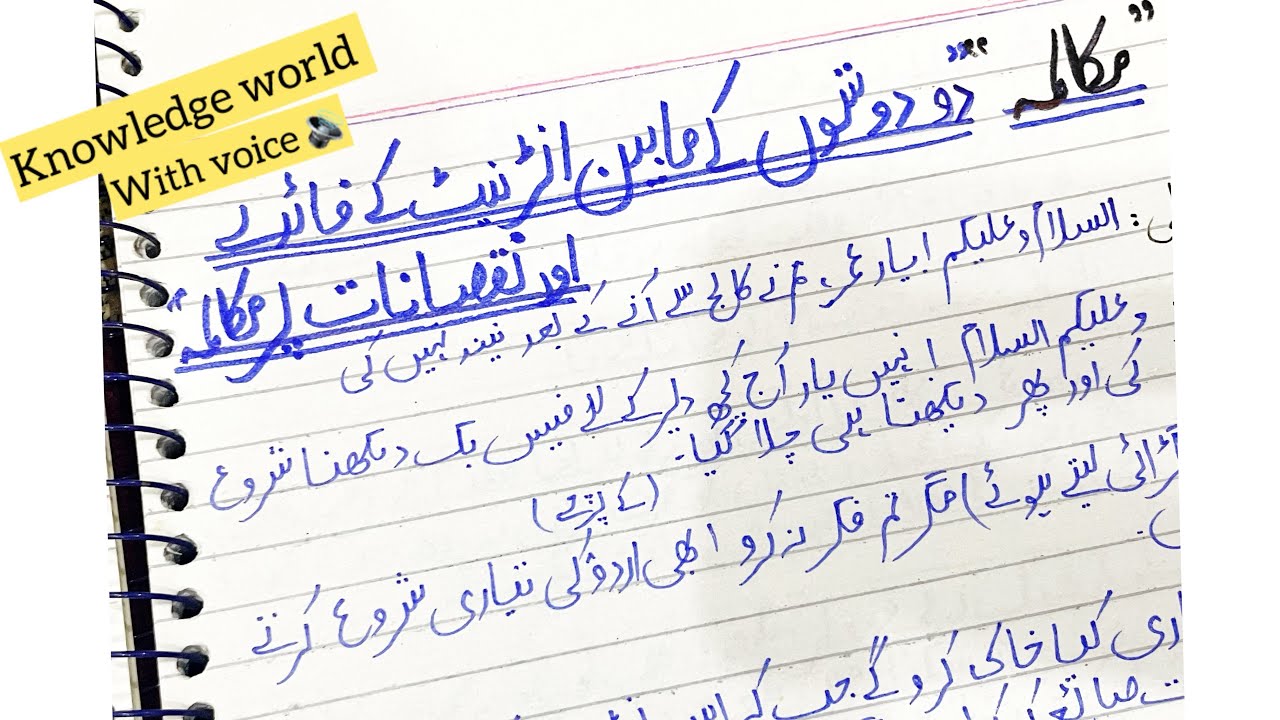 Knowledge world
With voice
"مکالمہ"
"دو دوستوں کے مابین انٹرنیٹ کے فائدے
اور نقصانات پر مکالمہ"
: السلام وعلیکم ! یار تم نے کالج سے آنے کے بعد نیند نہیں کی
وعلیکم السلام ! نہیں یار آج کچھ دیر کے لئے فیس بک دیکھنا شروع
کی اور پھر دیکھتا ہی چلا گیا۔
(کے پرچے)
لیتے ہوئے) مگر تم فکر نہ کرو ابھی اردو کی تیاری شروع کرتے
کیا خاک کرو گے جب کہ
ضائع